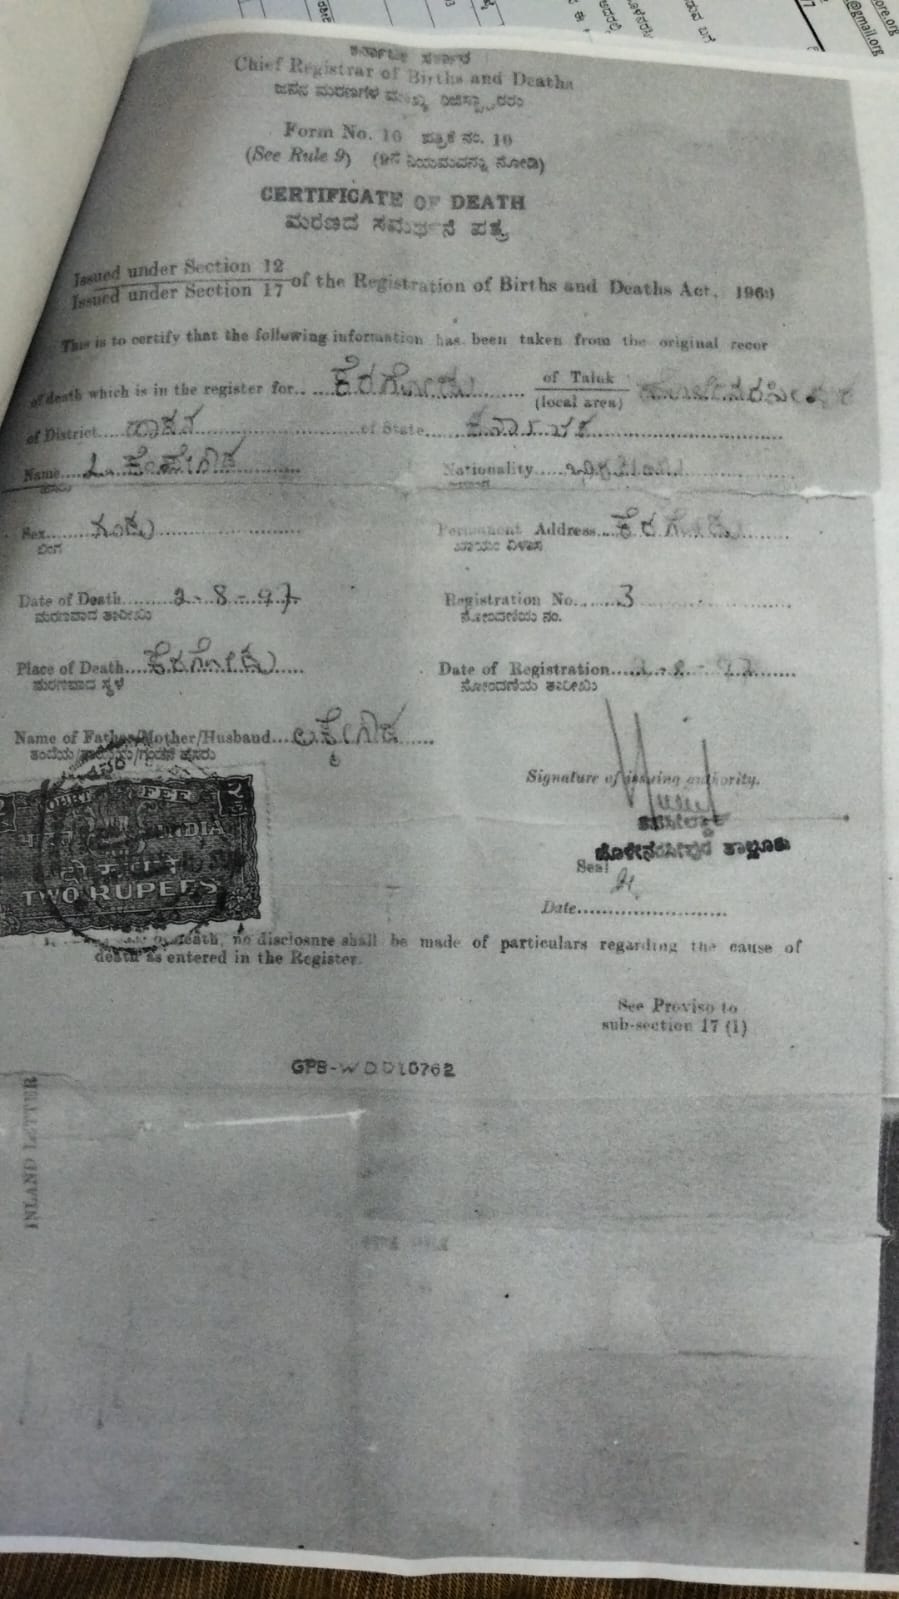 ಕರ್ನಾಟಕ ಸರ್ಕಾರ
Chief Registrar of Births and Deaths
ಜನನ ಮರಣಗಳ ಮುಖ್ಯ ರಿಜಿಸ್ಟ್ರಾರರು
Form No. 10 ಪತ್ರಿಕೆ ನಂ. 10
(See Rule 9) (9ನೆ ನಿಯಮವನ್ನು ನೋಡಿ)
CERTIFICATE OF DEATH
ಮರಣದ ಸಮರ್ಥನೆ ಪತ್ರ
Issued under Section 12
Issued under Section 17 of the Registration of Births and Deaths Act, 1969
This is to certify that the following information has been taken from the original recor
of death which is in the register for.. ಕೆರಗೋಡು of Taluk (local area) ಹೊಳೇನರಸೀಪುರ
of District ಹಾಸನ of State ಕರ್ನಾಟಕ
Name L. ಕೆಂಪೇಗೌಡ Nationality
ಹೆಸರು
Sex ಗಂಡು Permanent Address ಕೆರಗೋಡು
ಲಿಂಗ ಖಾಯಂ ವಿಳಾಸ
Date of Death 2-8-97 Registration No. 3
ಮರಣವಾದ ತಾರೀಖು ನೋಂದಣಿಯ ನಂ.
Place of Death ಕೆರಗೋಡು Date of Registration
ಮರಣವಾದ ಸ್ಥಳ ನೋಂದಣಿಯ ತಾರೀಖು
Name of Father/Mother/Husband ಲಕ್ಕೇಗೌಡ
ತಂದೆಯ/ತಾಯಿಯ/ಗಂಡನ ಹೆಸರು
Signature of issuing authority.
ತಹಸೀಲ್ದಾರ್
ಹೊಳೇನರಸೀಪುರ ತಾಲ್ಲೂಕು
Seal
Date
COURT FEE
भारत INDIA
दो रुपये
TWO RUPEES
death, no disclosure shall be made of particulars regarding the cause of
death as entered in the Register.
See Proviso to
sub-section 17 (1)
GPB-WDD10762
INLAND LETTER